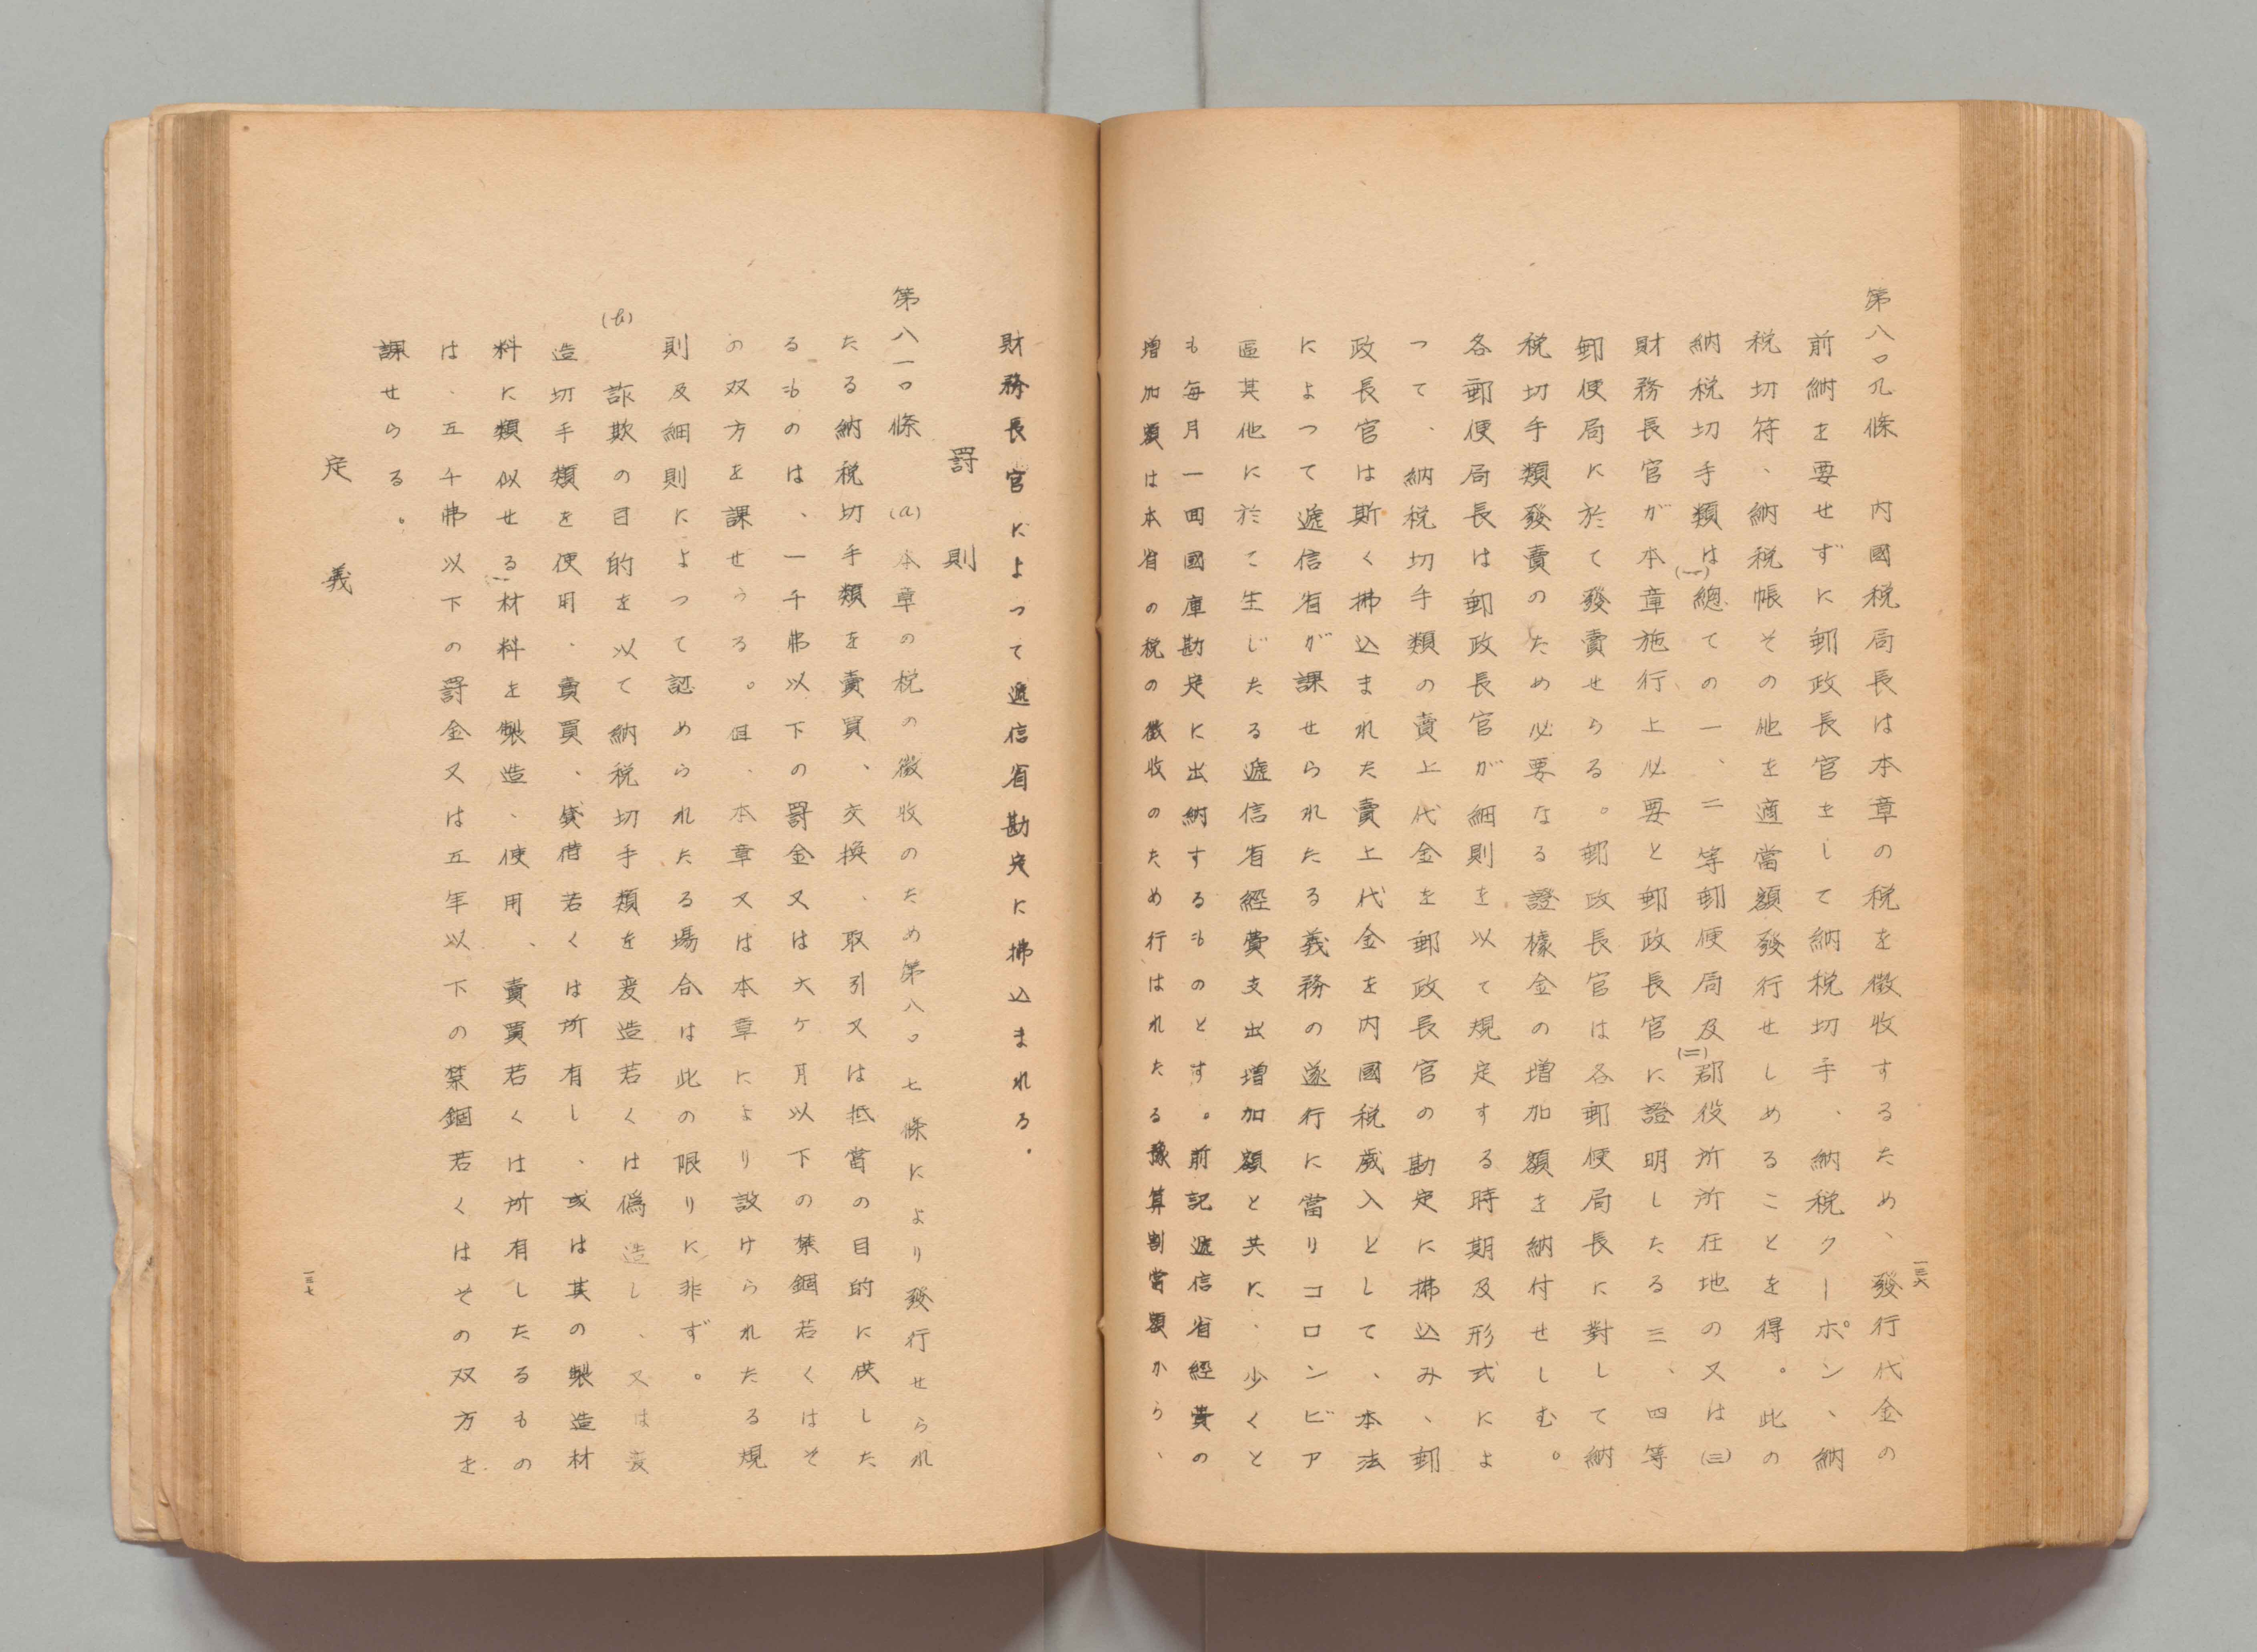 第八〇九條　内國税局長は本章の税を徴收するため、發行代金の
前納を要せずに郵政長官をして納税切手、納税クーポン、納
税切符、納税帳その他を適當額發行せしめることを得。此の
納税切手類は(一)總ての一、二等郵便局及(二)郡役所所在地の又は(三)
財務長官が本章施行上必要と郵政長官に證明したる三、四等
郵便局に於て發賣せらる。郵政長官は各郵便局長に對して納
税切手類發賣のため必要なる證據金の増加額を納付せしむ。
各郵便局長は郵政長官が細則を以て規定する時期及形式によ
つて、納税切手類の賣上代金を郵政長官の勘定に拂込み、郵
政長官は斯く拂込まれた賣上代金を内國税歳入として、本法
によつて遞信省が課せられたる義務の遂行に當りコロンビア
區其他に於て生じたる遞信省經費支出増加額と共に、少くと
も毎月一回國庫勘定に出納するものとす。前記遞信省經費の
増加額は本省の税の徴收のため行はれたる豫算割當額から、
一三六
財務長官によつて遞信省勘定に拂込まれる。
罰則
第八一〇條　(a)本章の税の徴收のため第八〇七條により發行せられ
たる納税切手類を賣買、交換、取引又は抵當の目的に供した
るものは、一千弗以下の罰金又は六ケ月以下の禁錮若くはそ
の双方を課せらる。但、本章又は本章により設けられたる規
則及細則によつて認められたる場合は此の限りに非ず。
(b)　詐欺の目的を以て納税切手類を変造若くは僞造し、又は変
造切手類を使用、賣買、貸借若くは所有し、或は其の製造材
料に類似せる材料を製造、使用、賣買若くは所有したるもの
は、五千弗以下の罰金又は五年以下の禁錮若くはその双方を
課せらる。
定義
一三七